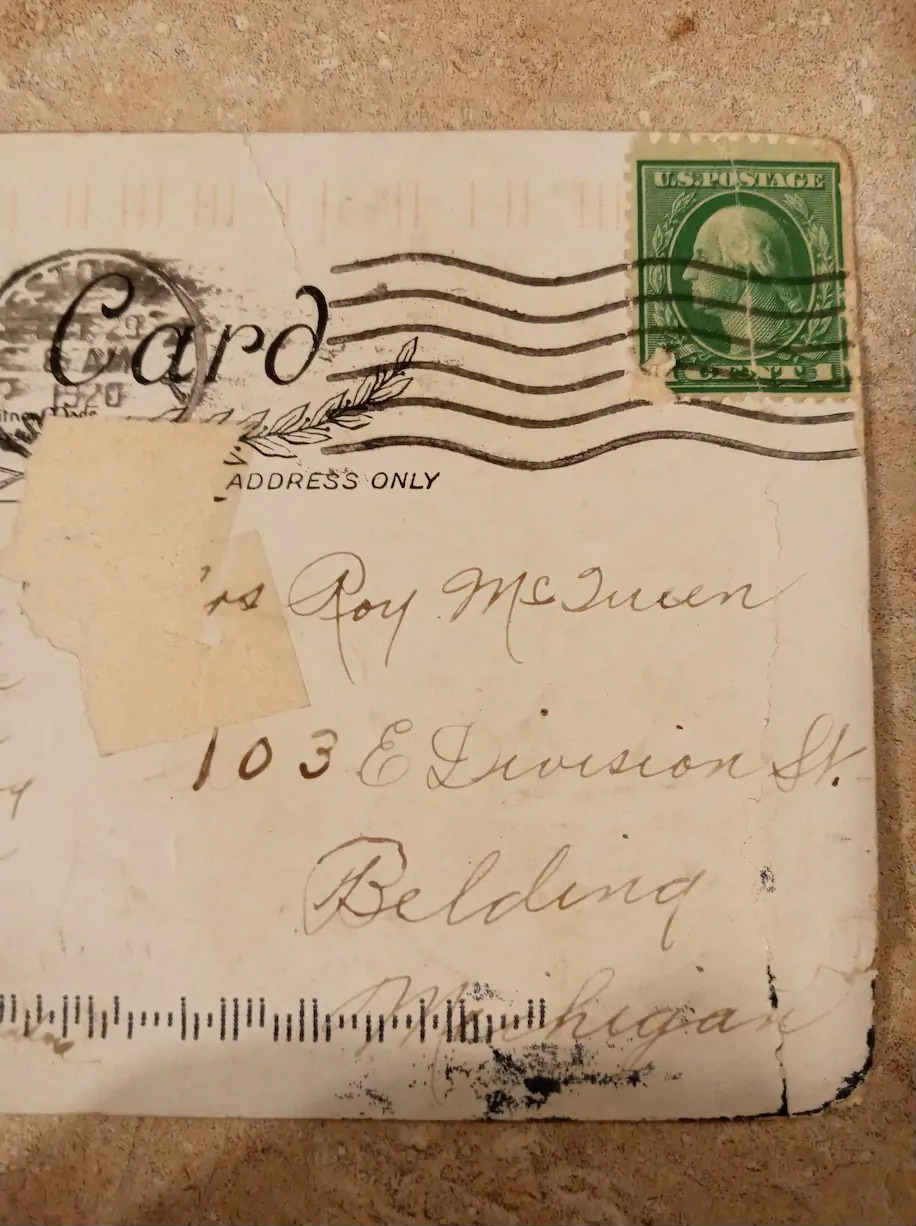 U.S. POSTAGE
Card
29
AM
1920
CENT
ADDRESS ONLY
rs Roy McQueen
103 E Division St.
Belding
Michigan